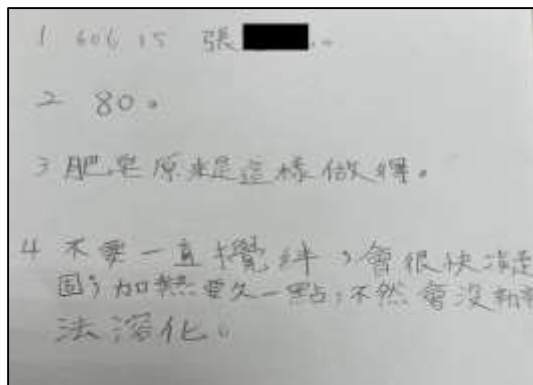 1 606 15 張
2 80。
3 肥皂原來是這樣做得。
4 不要一直攪絆，會很快凝
固，加熱要久一點，不然會沒辦
法溶化。